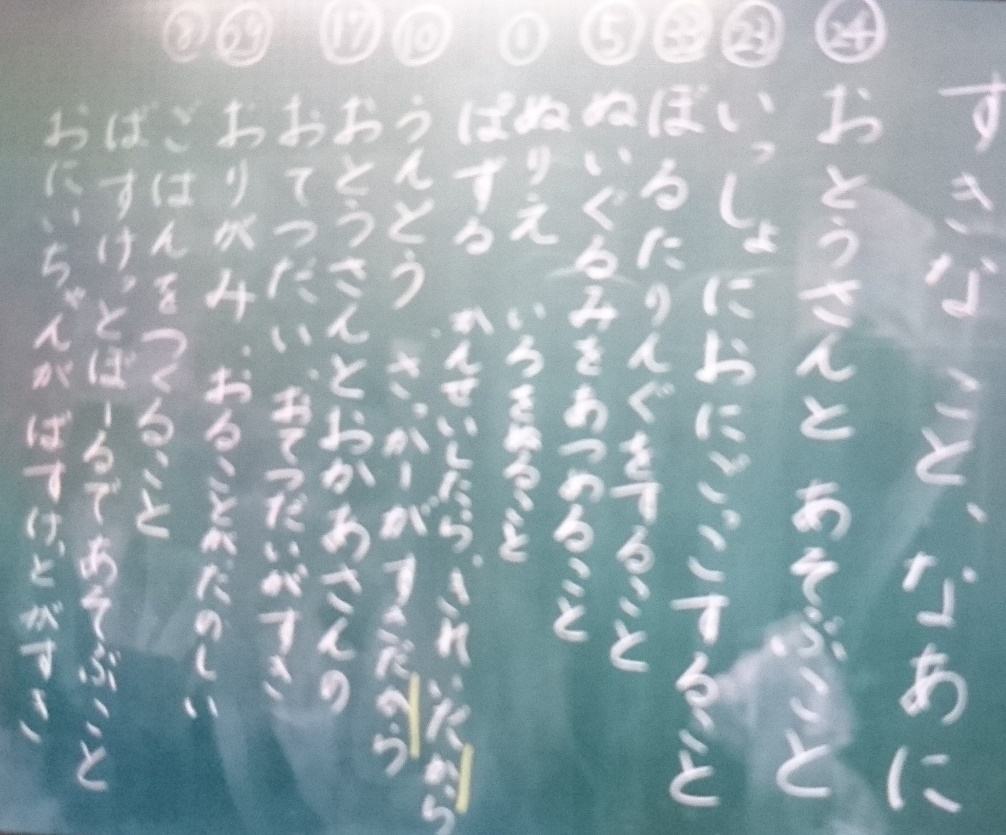 すきなこと、なあに
㉔ おとうさんと あそぶこと
㉓ いっしょにおにごっこすること
ぼるたりんぐをすること
⑤ ぬいぐるみをあつめること
① ぬりえ いろをぬること
ぱずる かんせいしたら、きれいだから
⑩ うんどう さっかーがすきだから
⑰ おとうさんとおかあさんの
おてつだい、おてつだいがすき
㉙ おりがみ、おることがたのしい
ごはんをつくること
ばすけっとぼーるであそぶこと
おにいちゃんがばすけっとがすき